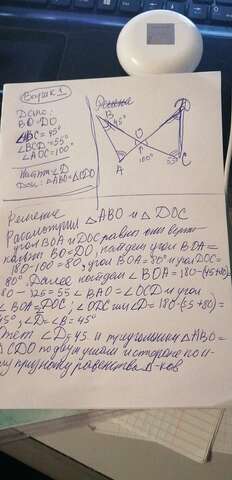 Вариант 1
Дано:
BO=DO
∠ABC=45°
∠BCD=55°
∠AOC=100°
Найти: ∠D
Док: △ABO=△CDO
Решение
B
45°
D
O
100°
55°
A
C
Решение
Рассмотрим △ABO и △DOC
угол BOA и DOC равны они верти-
BO=DO, найдем угол BOA=
180-100=80, угол BOA=80° и угол DOC=
80°. Далее найдем ∠BOA=180-(45+80)=
180-125=55 ∠BAO=∠OCD и угол
∠BOA=DOC; ∠ODC или ∠D=180-(55+80)=
45°, ∠D=∠B=45°
Ответ ∠D=45 и треугольники △ABO=
△CDO по двум углам и стороне по
признаку равенства Δ-ков